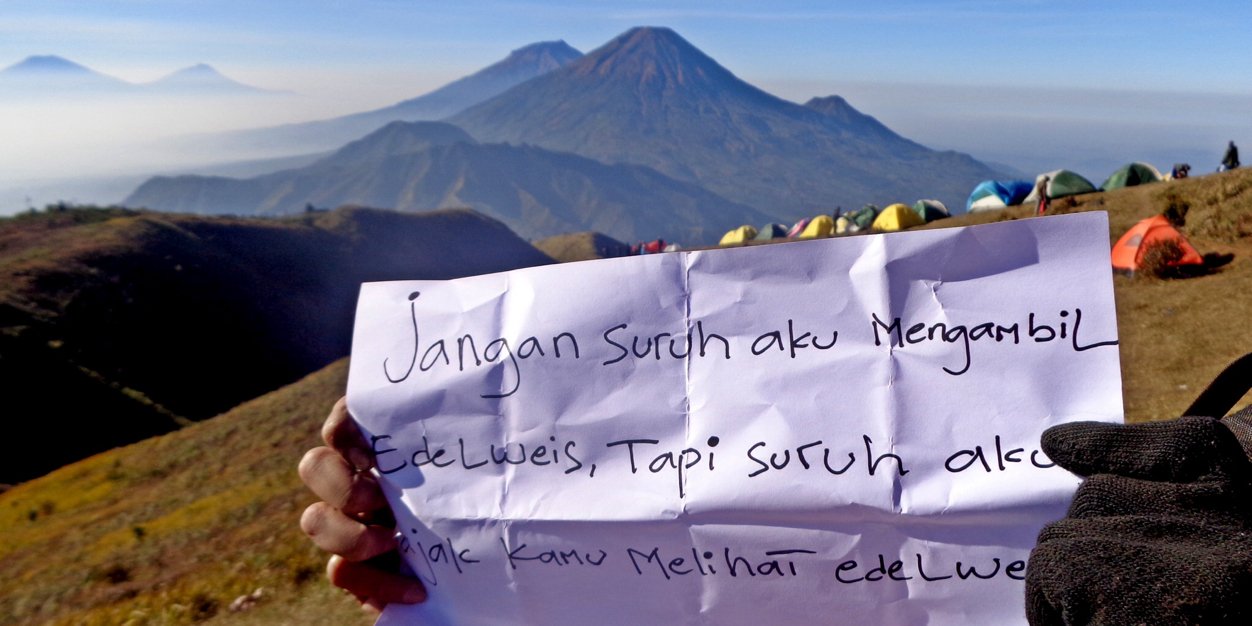 Jangan suruh aku MengambiL
EdeLweis, Tapi suruh aku
ajak kamu MelihaT edeLwe